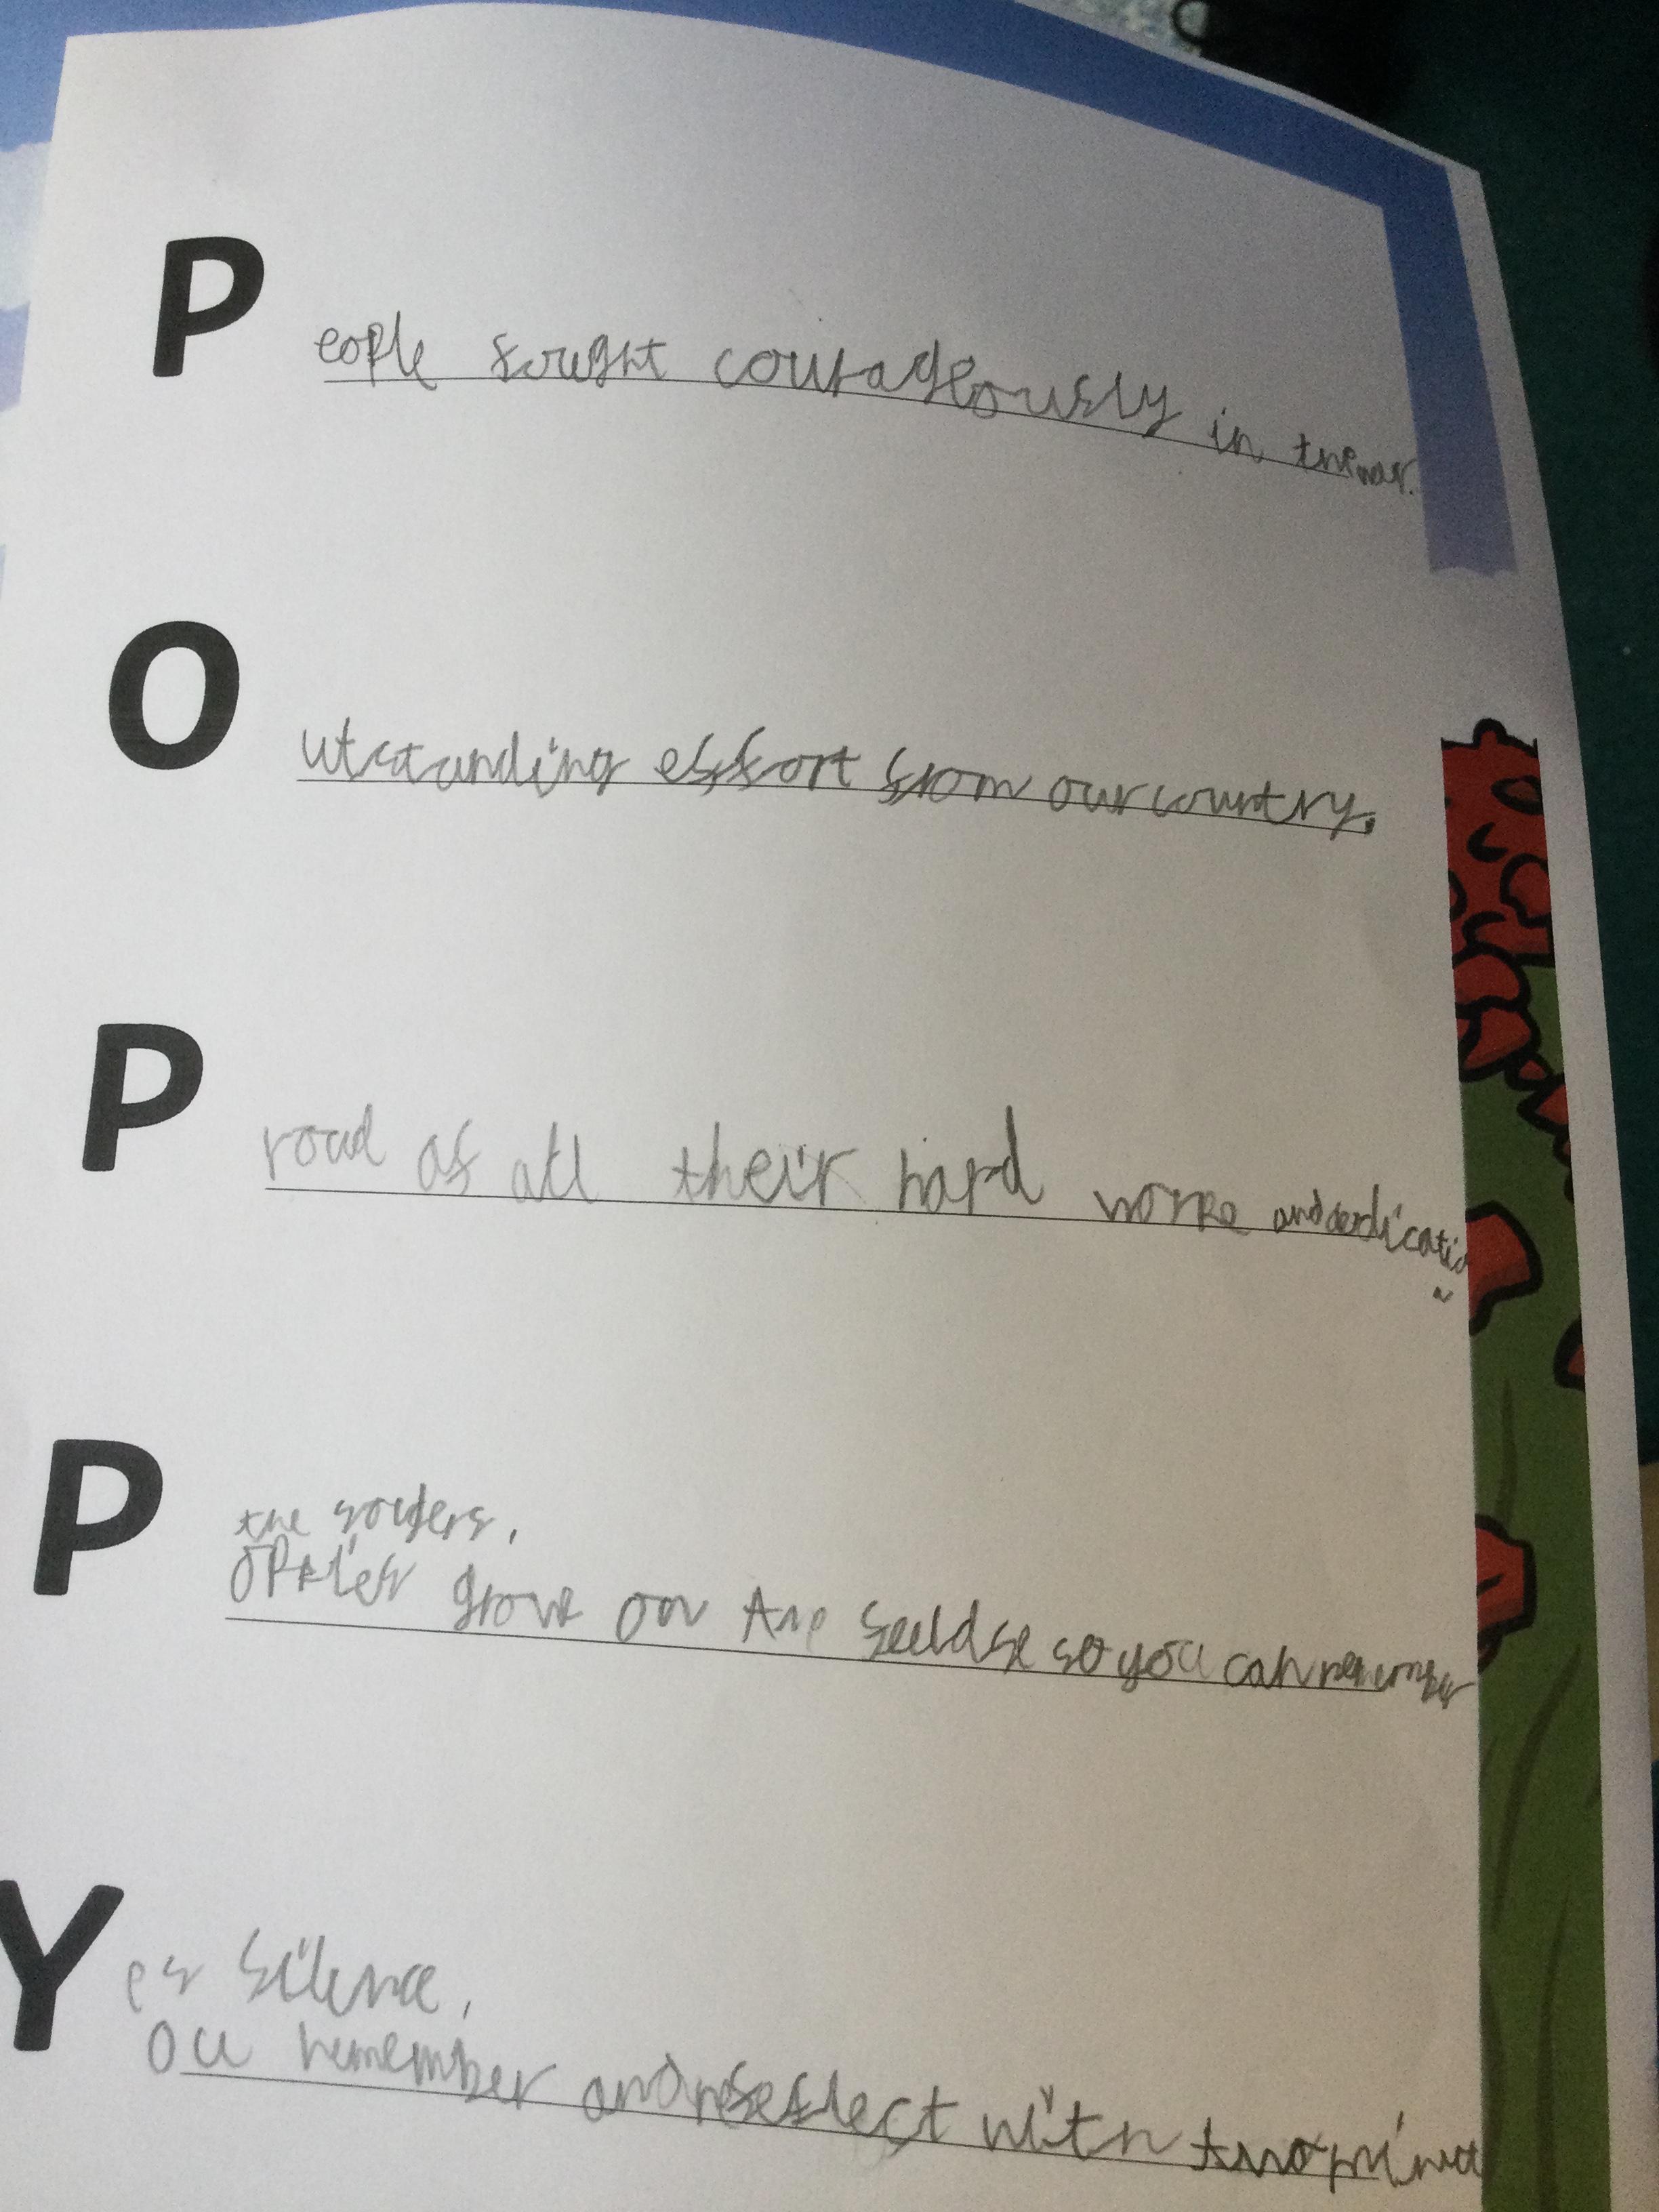 People fought courageously in the war.
Outstanding effort from our country.
Proud of all their hard worke and dedicatio
n
the solders,
Poppies grow on the
so you can remember
es silence,
You remember and reflect with two minut